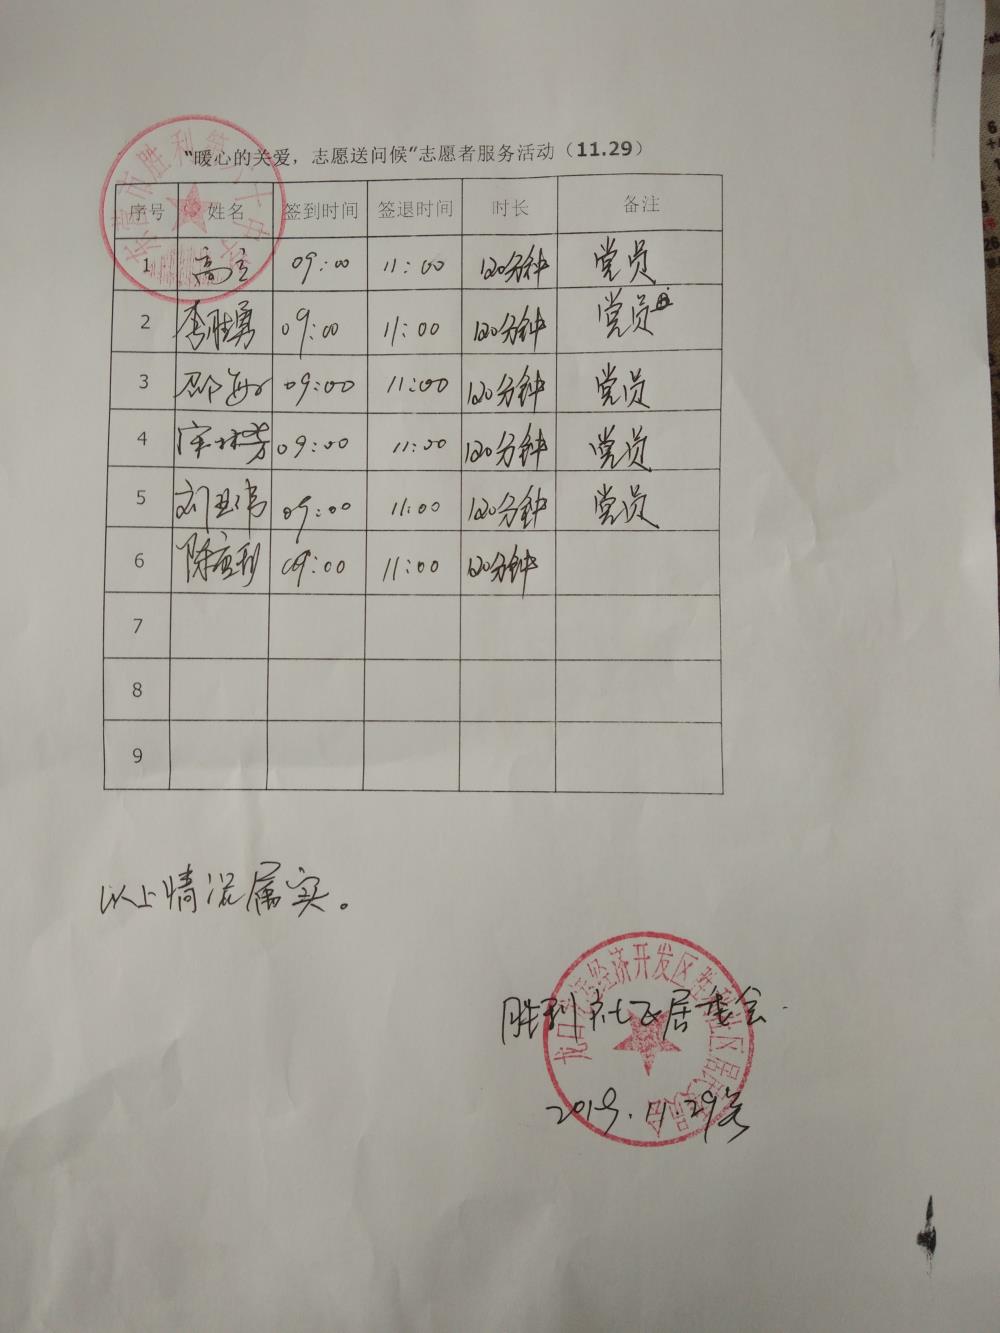 “暖心的关爱，志愿送问候”志愿者服务活动（11.29）
序号 姓名 签到时间 签退时间 时长 备注
1 高立 09:00 11:00 120分钟 党员
2 李胜勇 09:00 11:00 120分钟 党员
3 邵海 09:00 11:00 120分钟 党员
4 09:00 11:00 120分钟 党员
5 刘卫伟 09:00 11:00 120分钟 党员
6 09:00 11:00 120分钟
7
8
9
以上情况属实。
胜利社区居委会
2019.11.29
东营市胜利第六十中学
经济开发区胜利社区居民委员会